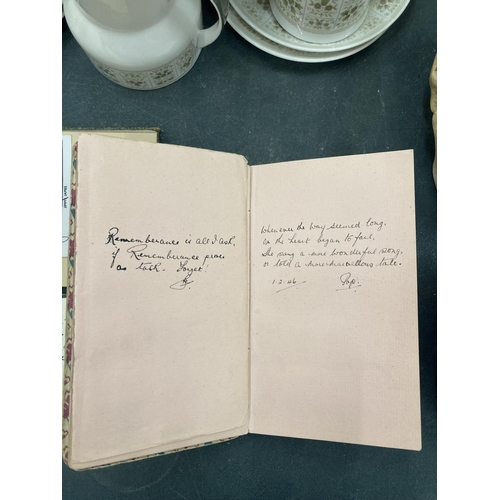 Rememberance is all I ask,
if Rememberance prove
as task. Forget!
Whenever the way seemed long,
or the heart began to fail,
She sang a more wonderful song,
or told a more marvellous tale.
1.2.46 Pop.